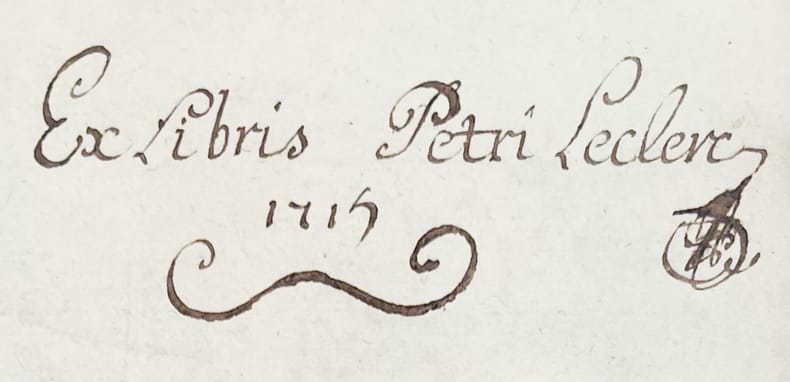 Ex Libris Petri Leclerc
1715